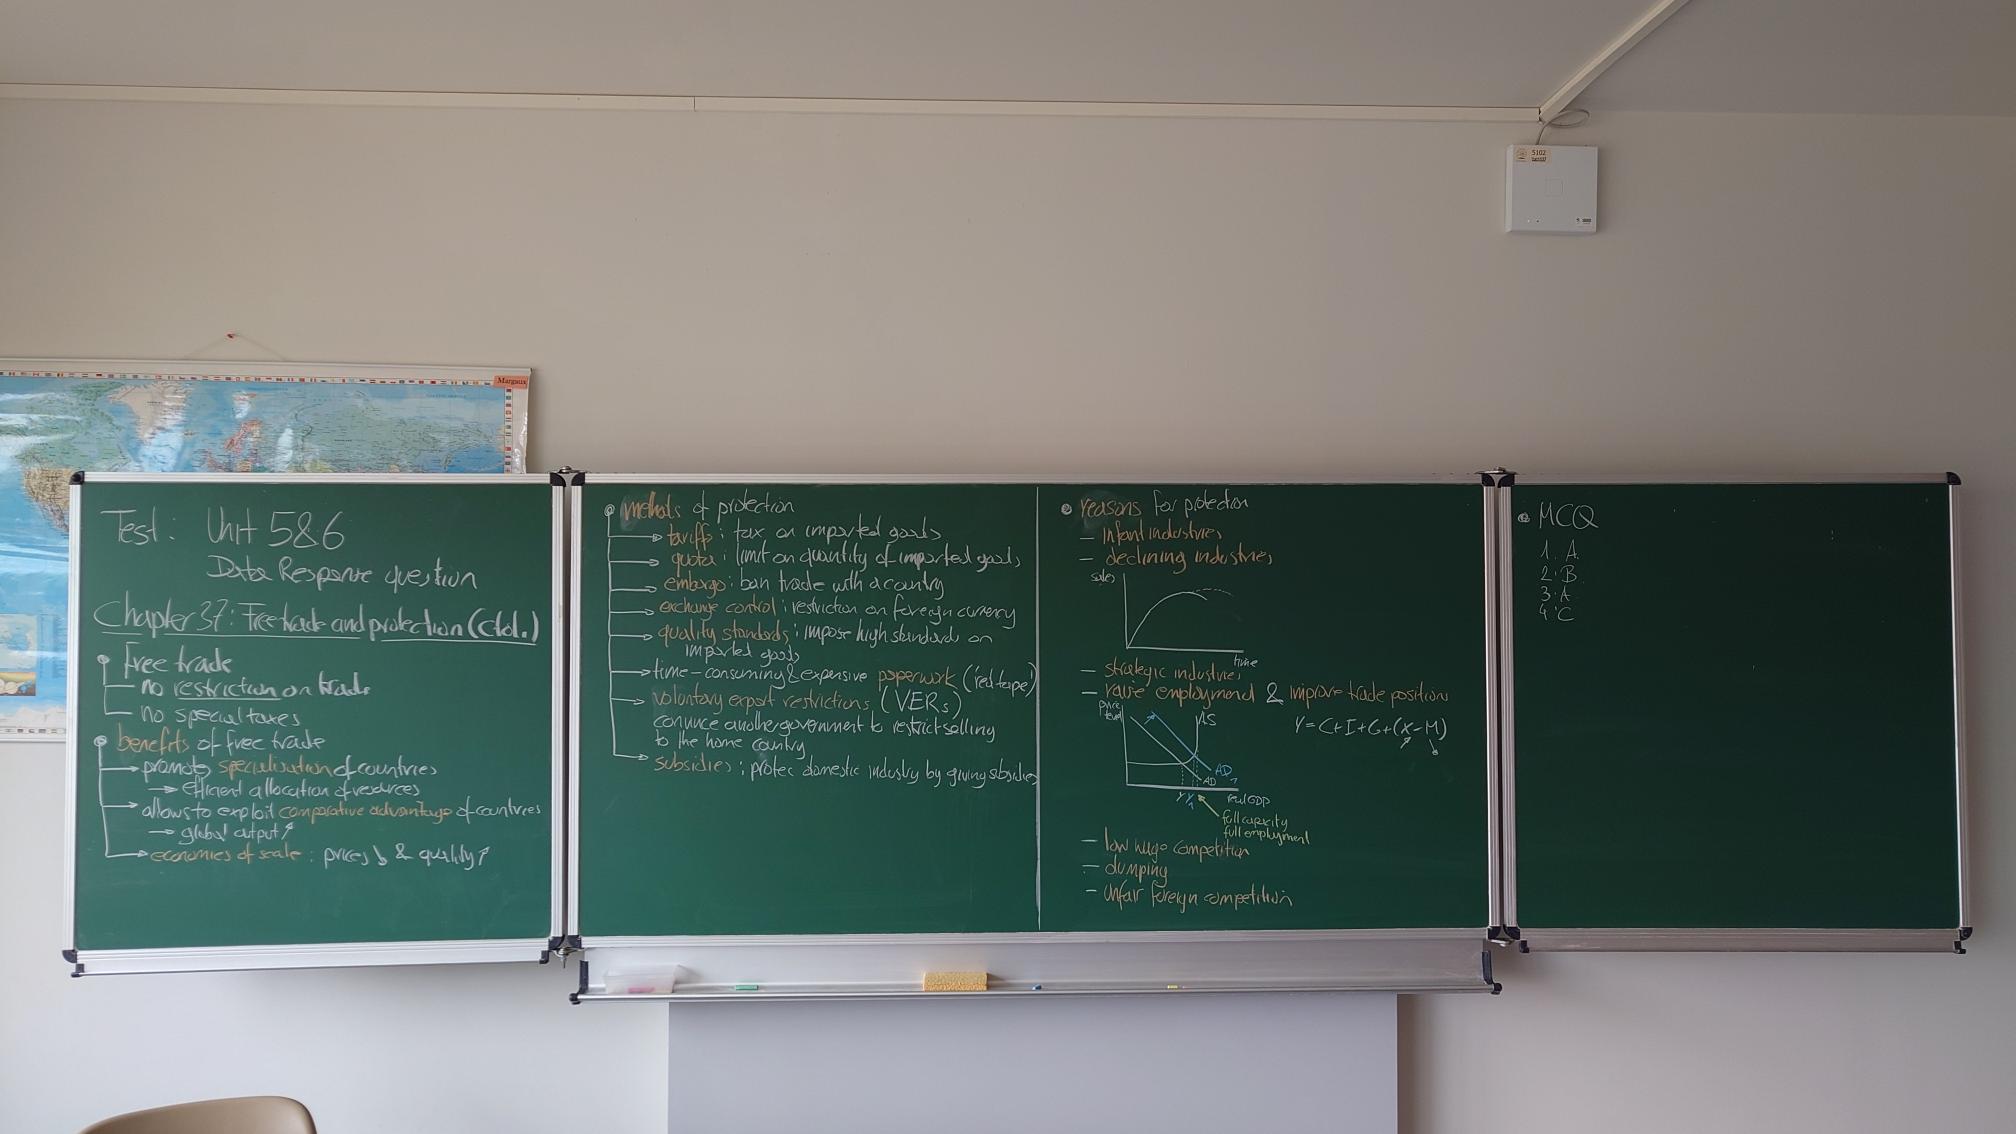 Test: Unit 5&6
Data Response question
Chapter 37: Free trade and protection (ctd.)
free trade
no restriction on trade
no special taxes
benefits of free trade
promotes specialisation of countries
→ efficient allocation of resources
allows to exploit comparative advantage of countries
→ global output ↗
economies of scale: prices ↘ & quality ↗
methods of protection
tariffs: tax on imported goods
quota: limit on quantity of imported goods
embargo: ban trade with a country
exchange control: restriction on foreign currency
quality standards: impose high standards on
imported goods
time-consuming & expensive paperwork ('red tape')
voluntary export restrictions (VERs)
convince another government to restrict selling
to the home country
subsidies: protec domestic industry by giving subsidies
reasons for protection
- infant industries
- declining industries
sales
time
- strategic industries
- raise employment & improve trade position
price level
AS
Y = C+I+G+(X-M)
AD1
AD
Y Y1
real GDP
full capacity
full employment
- low wage competition
- dumping
- unfair foreign competition
MCQ
1. A
2. B
3. A
4. C
Margaux
5102